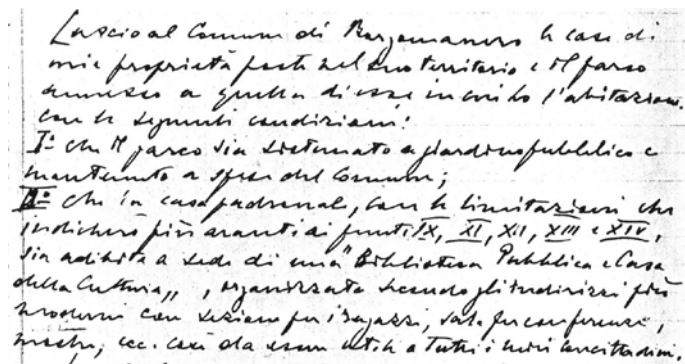 Lascio al Comune di Borgomanero le case di
mie proprietà poste nel suo territorio e il parco
annesso a quella di esse in cui ho l'abitazione.
con le seguenti condizioni:
I° che il parco sia sistemato a giardino pubblico e
mantenuto a spese del Comune;
II° che in casa padronale, con le limitazioni che
indicherò più avanti ai punti IX, XI, XII, XIII e XIV,
sia adibita a sede di una "Biblioteca Pubblica e Casa
della Cultura„, organizzata secondo gli indirizzi più
moderni con sezione per i ragazzi, sala per conferenze,
mostre, ecc. così da essere utile a tutti i miei concittadini.